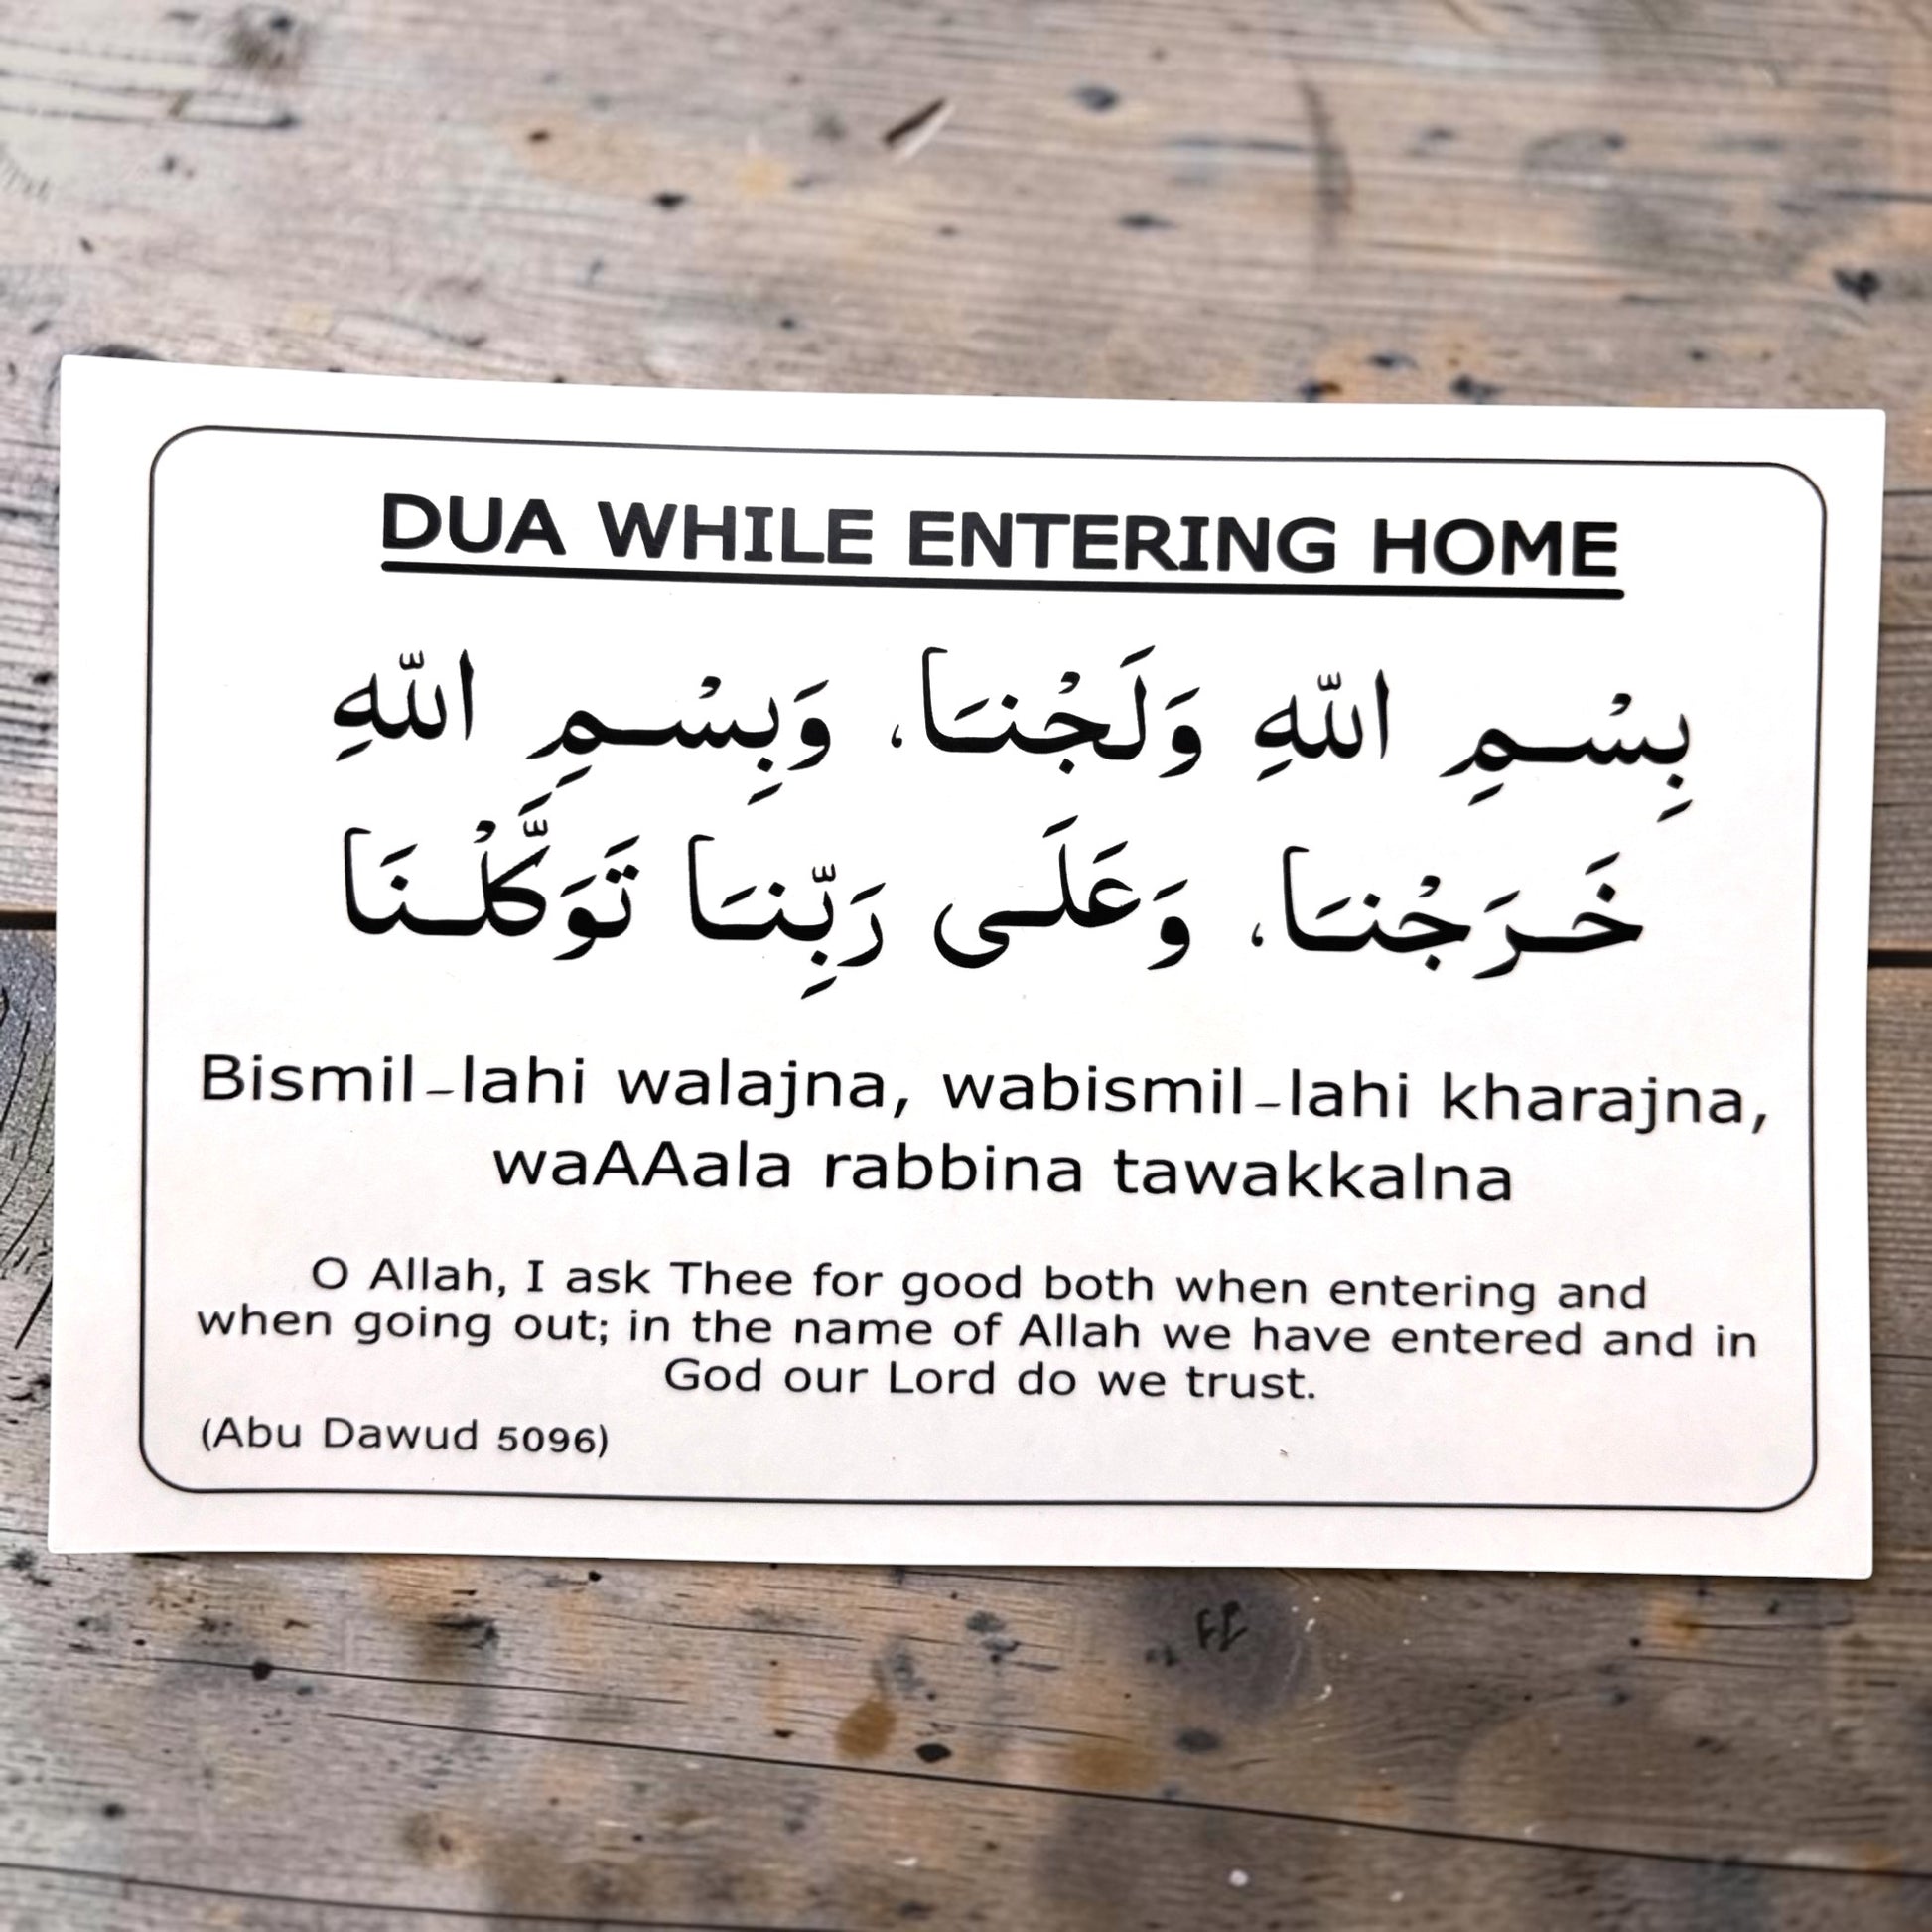 DUA WHILE ENTERING HOME
بِسْمِ اللّهِ وَلَجْنَا، وَبِسْمِ اللّهِ
خَرَجْنَا، وَعَلَى رَبِّنَا تَوَكَّلْنَا
Bismil-lahi walajna, wabismil-lahi kharajna,
waAAala rabbina tawakkalna
O Allah, I ask Thee for good both when entering and
when going out; in the name of Allah we have entered and in
God our Lord do we trust.
(Abu Dawud 5096)